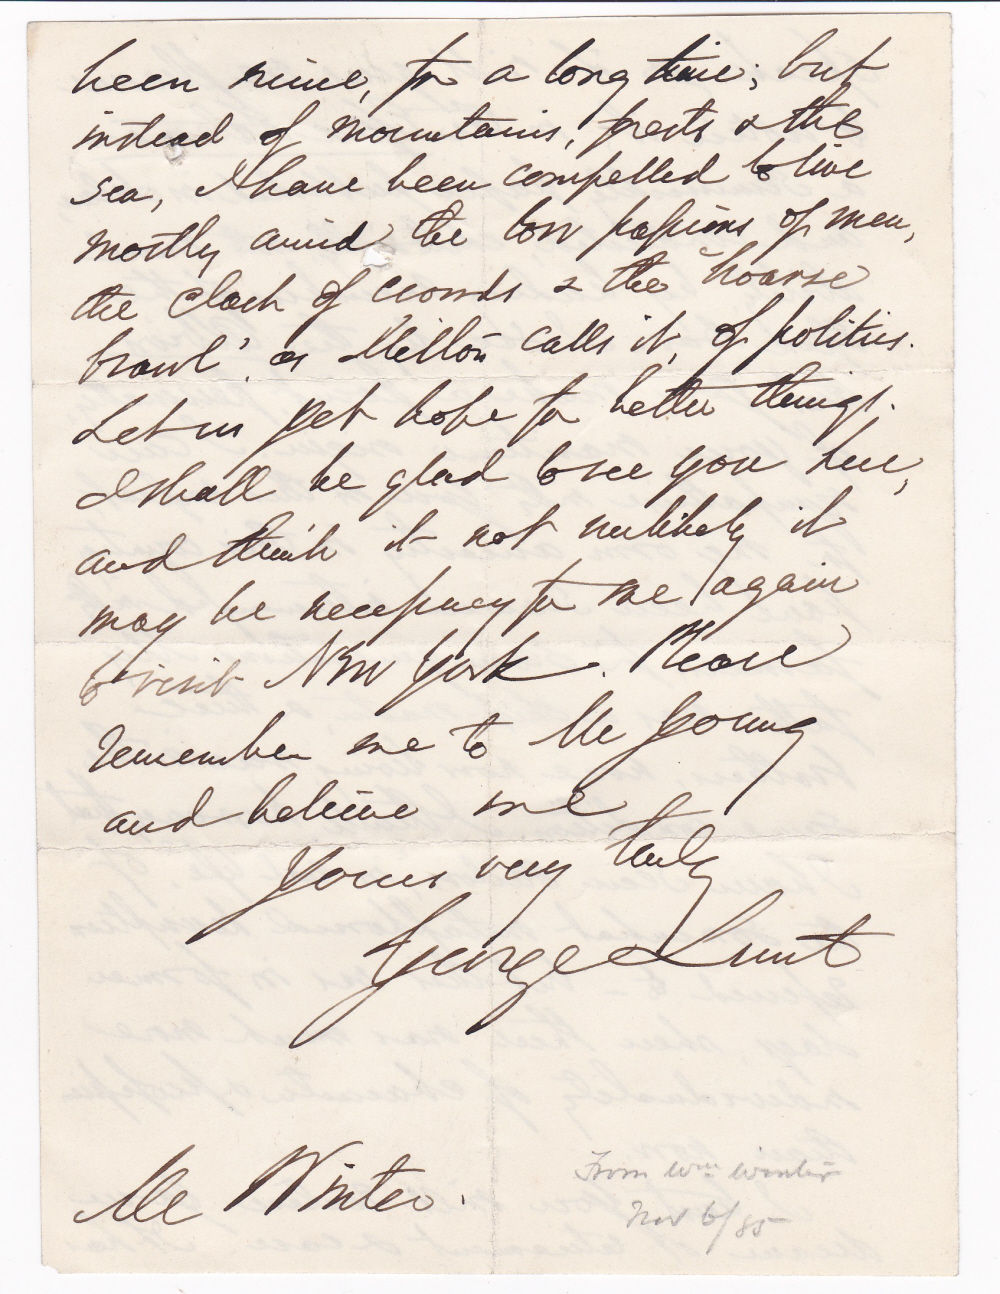 been mine, for a long time; but
instead of mountains, forests & the
sea, I have been compelled to live
mostly amid the low passions of men,
the clash of crowds & the "hoarse
brawl", as Milton calls it, of politics.
Let us yet hope for better things.
I shall be glad to see you here,
and think it not unlikely it
may be necessary for me again
to visit New York. Please
remember me to Mr Young
and believe me
Yours very truly
George Lunt
Mr Winter.
From Wm Winter
Nov 6/85